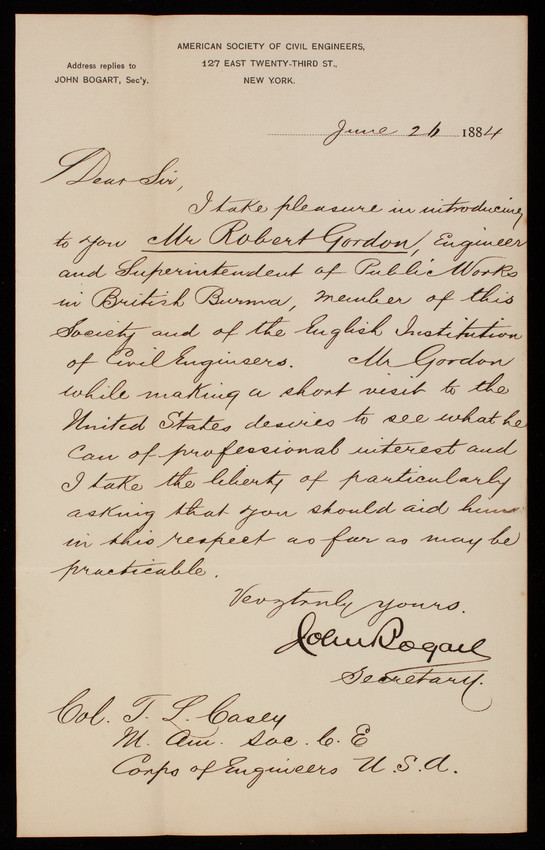 AMERICAN SOCIETY OF CIVIL ENGINEERS,
127 EAST TWENTY-THIRD ST.,
NEW YORK.
Address replies to
JOHN BOGART, Sec'y.
June 26 1884
Dear Sir,
I take pleasure in introducing
to you Mr Robert Gordon, Engineer
and Superintendent of Public Works
in British Burma, Member of this
Society and of the English Institution
of Civil Engineers. Mr Gordon
while making a short visit to the
United States desires to see what he
can of professional interest and
I take the liberty of particularly
asking that you should aid him
in this respect as far as may be
practicable.
Very truly yours.
John Bogart
Secretary.
Col. T. L. Casey
M. Am. Soc. C. E
Corps of Engineers U.S.A.